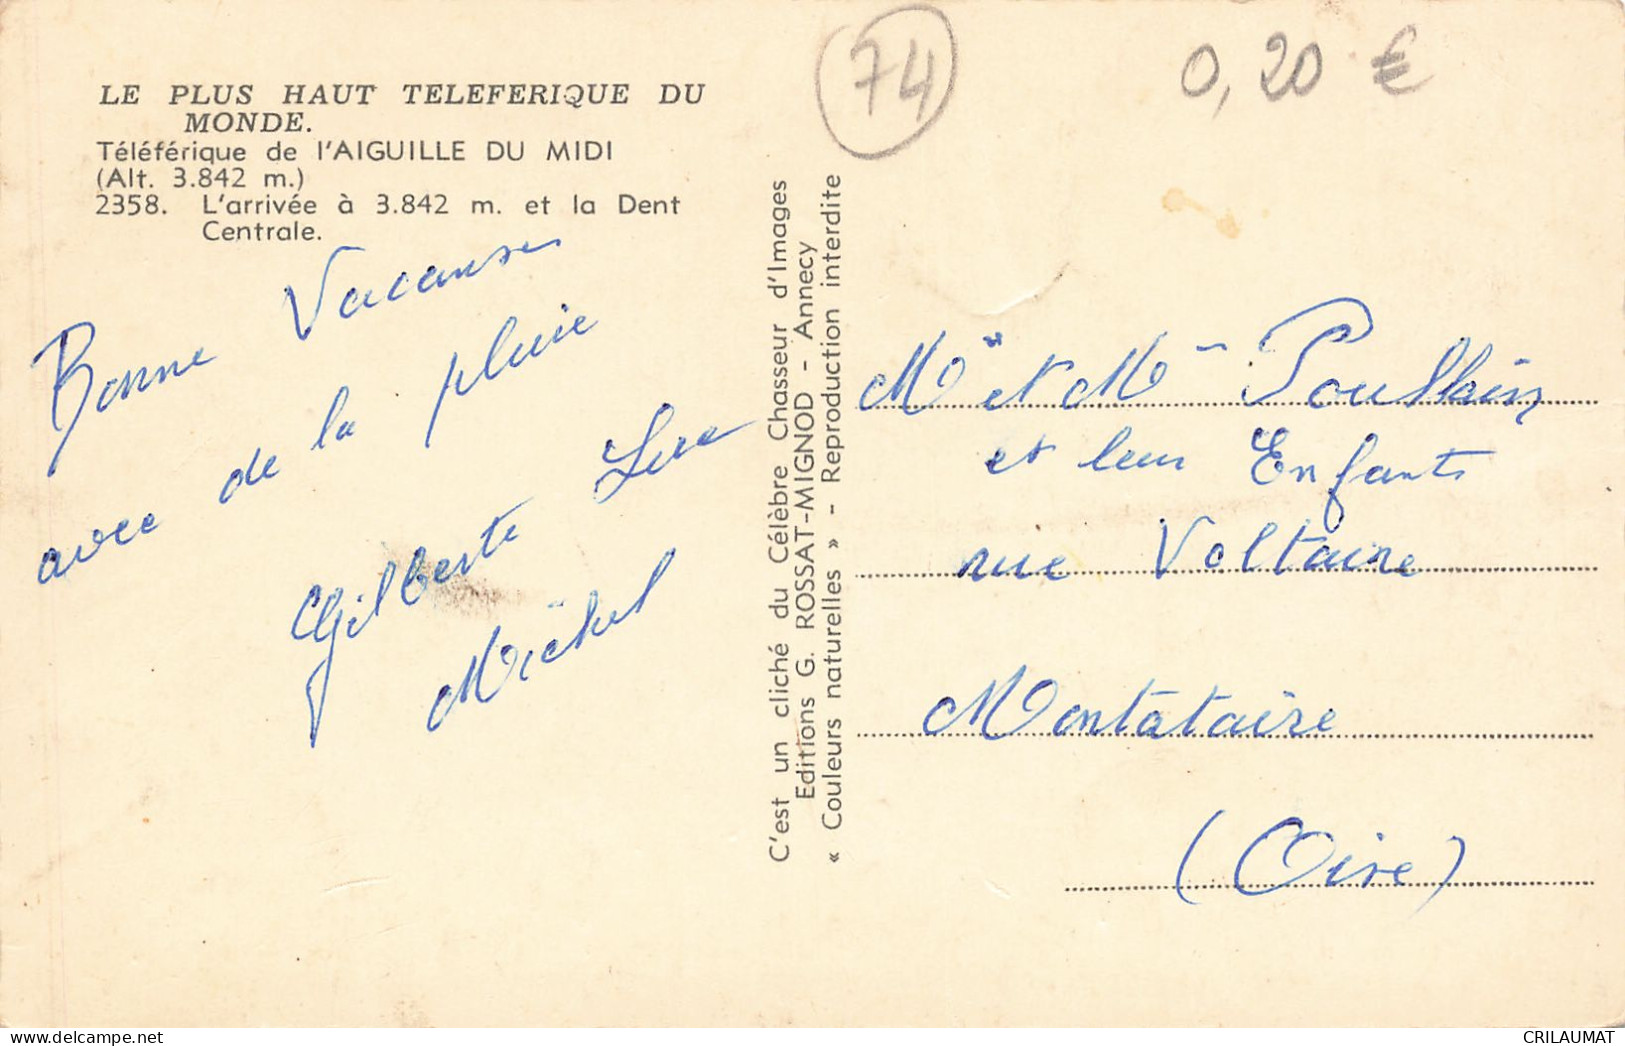 LE PLUS HAUT TELEFERIQUE DU
MONDE.
Téléférique de l'AIGUILLE DU MIDI
(Alt. 3.842 m.)
2358. L'arrivée à 3.842 m. et la Dent
Centrale.
Bonne Vacanses
avec de la pluie
Gilberte
Michel
C'est un cliché du Célèbre Chasseur d'Images
Editions G. ROSSAT-MIGNOD - Annecy
« Couleurs naturelles » - Reproduction interdite
74
0,20 €
Mr et Mme Poullain
et leurs Enfants
rue Voltaire
Montataire
(Oise)
delcampe.net
CRILAUMAT